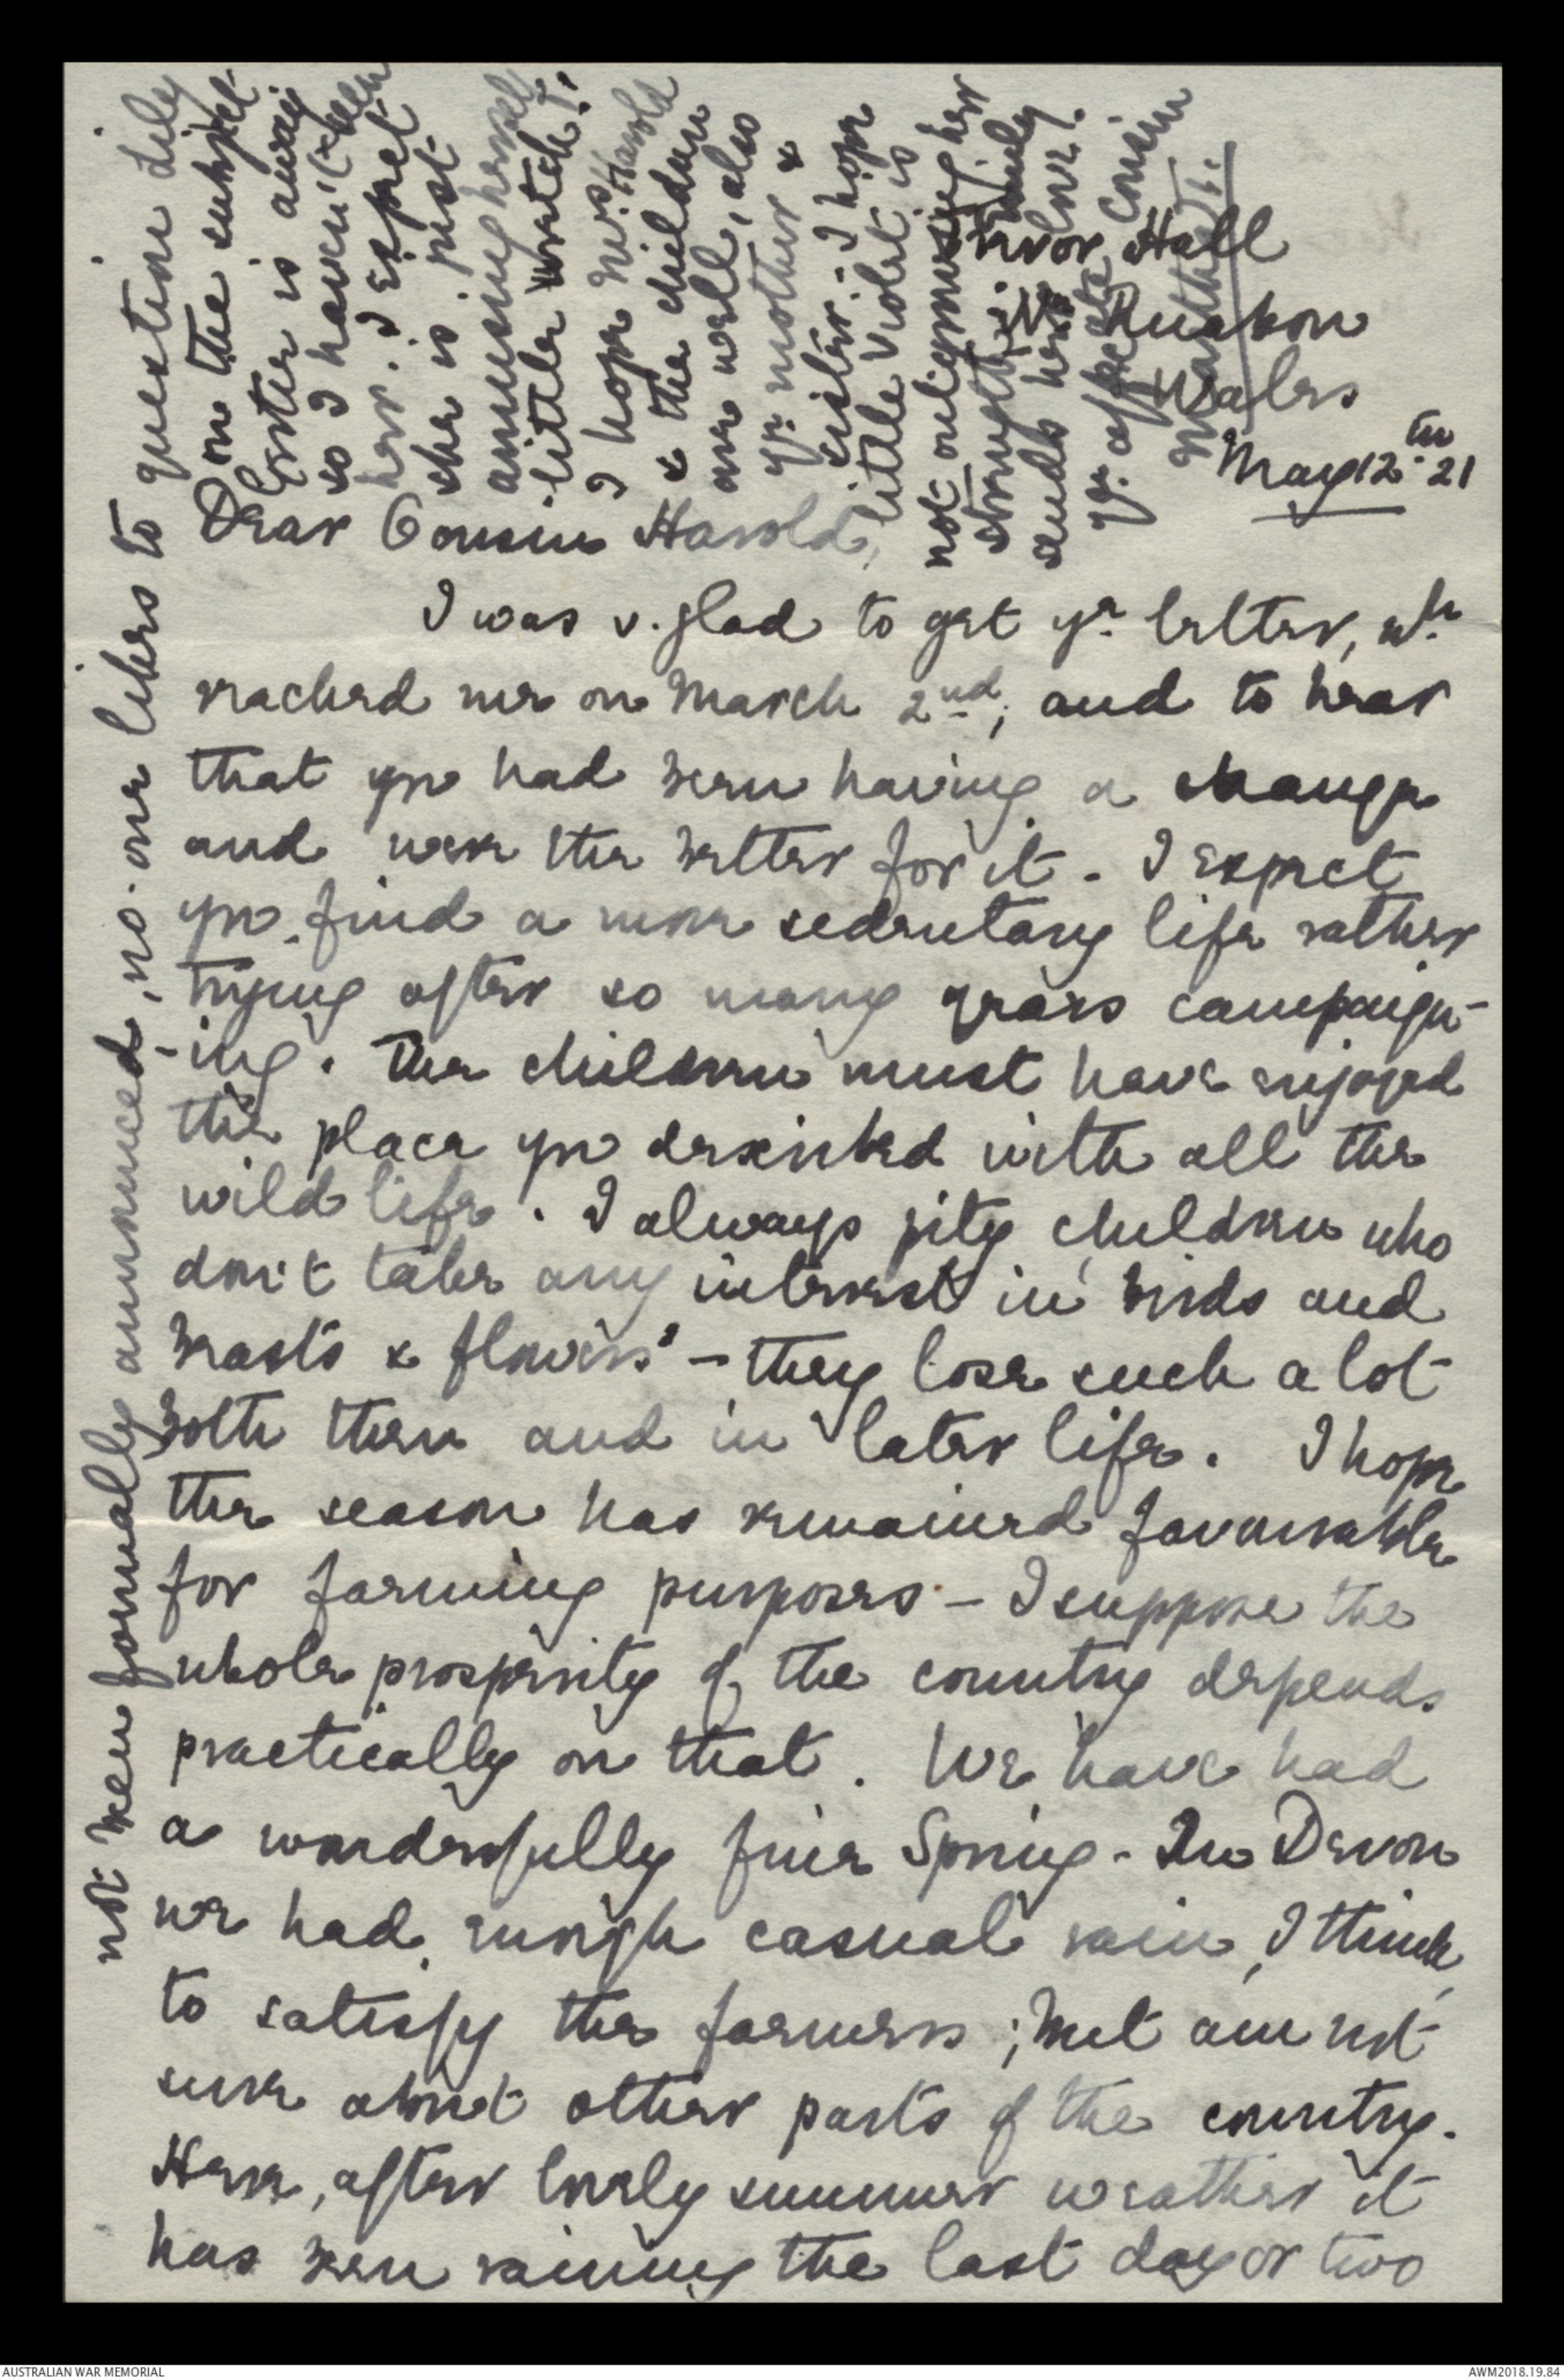 Trevor Hall
Nr Ruabon
Wales
May 12th 21
Dear Cousin Harold,
I was v. glad to get yr. letter, wh.
reached me on March 2nd; and to hear
that you had been having a change
and were the better for it - I expect
you find a more sedentary life rather
trying after so many years campaign-
-ing. The children must have enjoyed
the place you described with all the
wild life. I always pity children who
don't take any interest in birds and
beasts & flowers - they lose such a lot
both then and in later life. I hope
the season has remained favourable
for farming purposes - I suppose the
whole prosperity of the country depends
practically on that. We have had
a wonderfully fine Spring - In Devon
we had enough casual rain, I think,
to satisfy the farmers; but am not
sure about other parts of the country.
Here, after lovely summer weather it
has been raining the last day or two
not been formally announced, no-one likes to question Lily
on the subject.
is away
so I haven't seen
her. I expect
she is just
amusing herself
little wretch!
I hope Mrs Harold
& the children
are well, also
yr. mother &
sister - I hope
little Violet is
not outgrowing her
strength.
sends her love.
Yr. affecate Cousin
AUSTRALIAN WAR MEMORIAL
AWM2018.19.84